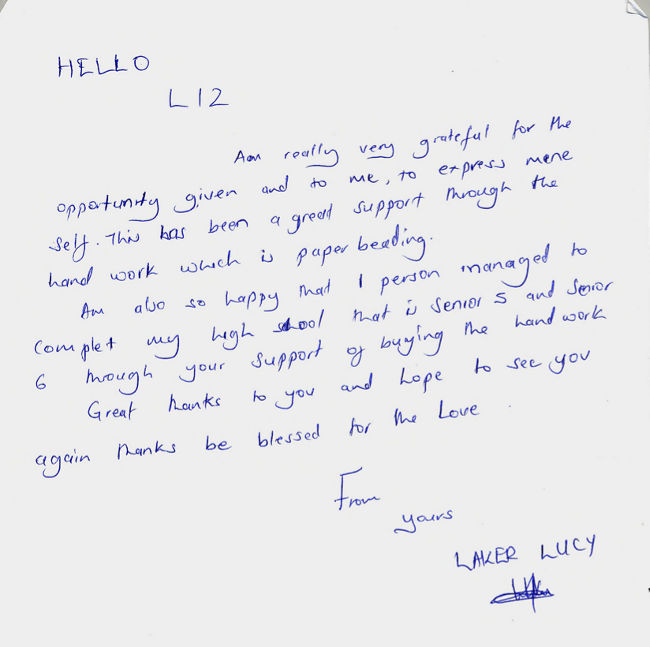 HELLO
LIZ
Am really very grateful for the
opportunity given and to me, to express mene
self. This has been a great support through the
hand work which is paper beading.
Am also so happy that I person managed to
complet my high school that is senior 5 and senior
6 through your support of buying the handwork
Great thanks to you and hope to see you
again thanks be blessed for the Love.
From
yours
LAKER LUCY